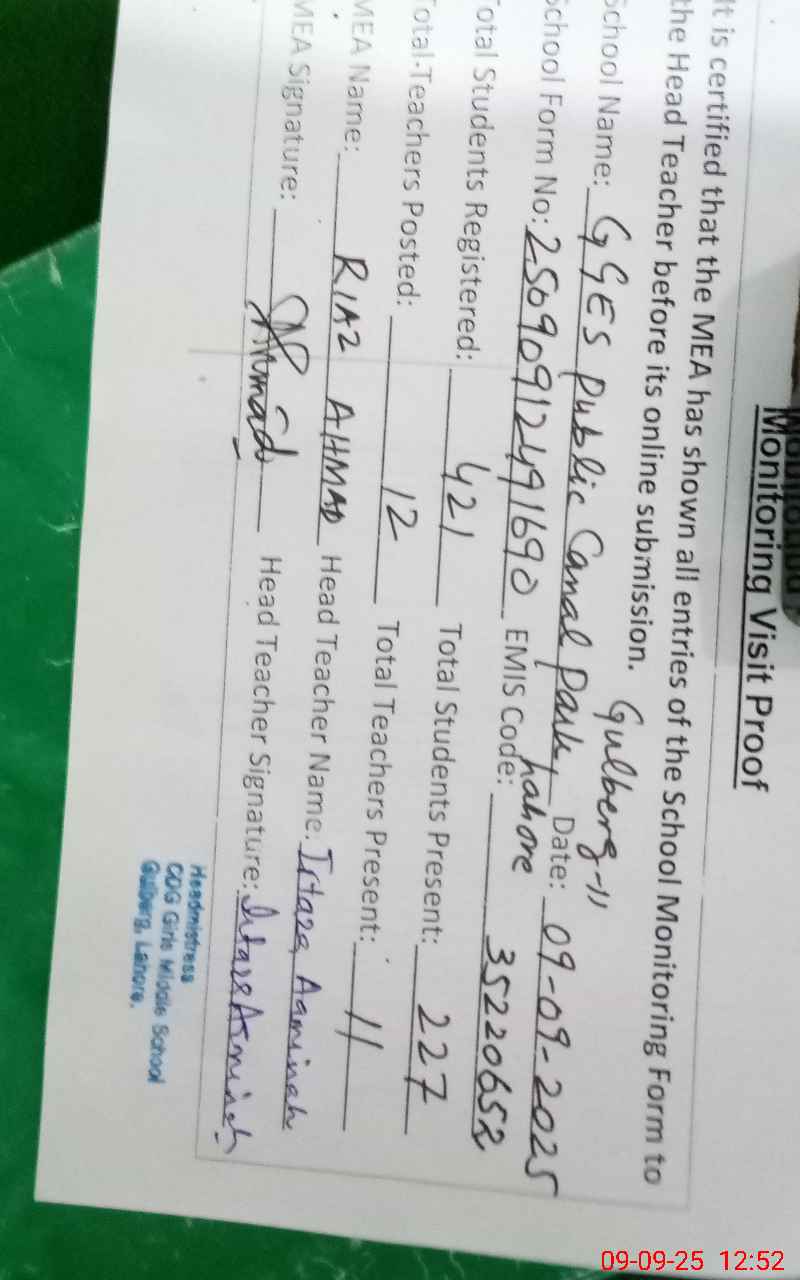 Monitoring Visit Proof
It is certified that the MEA has shown all entries of the School Monitoring Form to
the Head Teacher before its online submission.
Gulberg-11
School Name: GGES Public Canal Park Lahore Date: 09-09-2025
School Form No: 25090912491690 EMIS Code: 35220652
Total Students Registered: 421 Total Students Present: 227
Total-Teachers Posted: 12 Total Teachers Present: 11
MEA Name: RIAZ AHMAD Head Teacher Name: Irtaza Aaminah
MEA Signature: Ahmad Head Teacher Signature: Irtaza Aaminah
Headmistress
CDG Girls Middle School
Gulberg, Lahore.
09-09-25 12:52